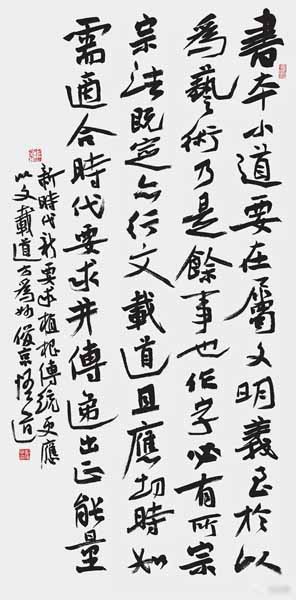 書本小道要在屬文明義至於以
為藝術乃是餘事也作字必有所宗
宗法既定亦行文載道且應切時如
需適合時代要求并傳遞出正能量
新時代新要求植根傳統更應
以文載道方為妙俊京